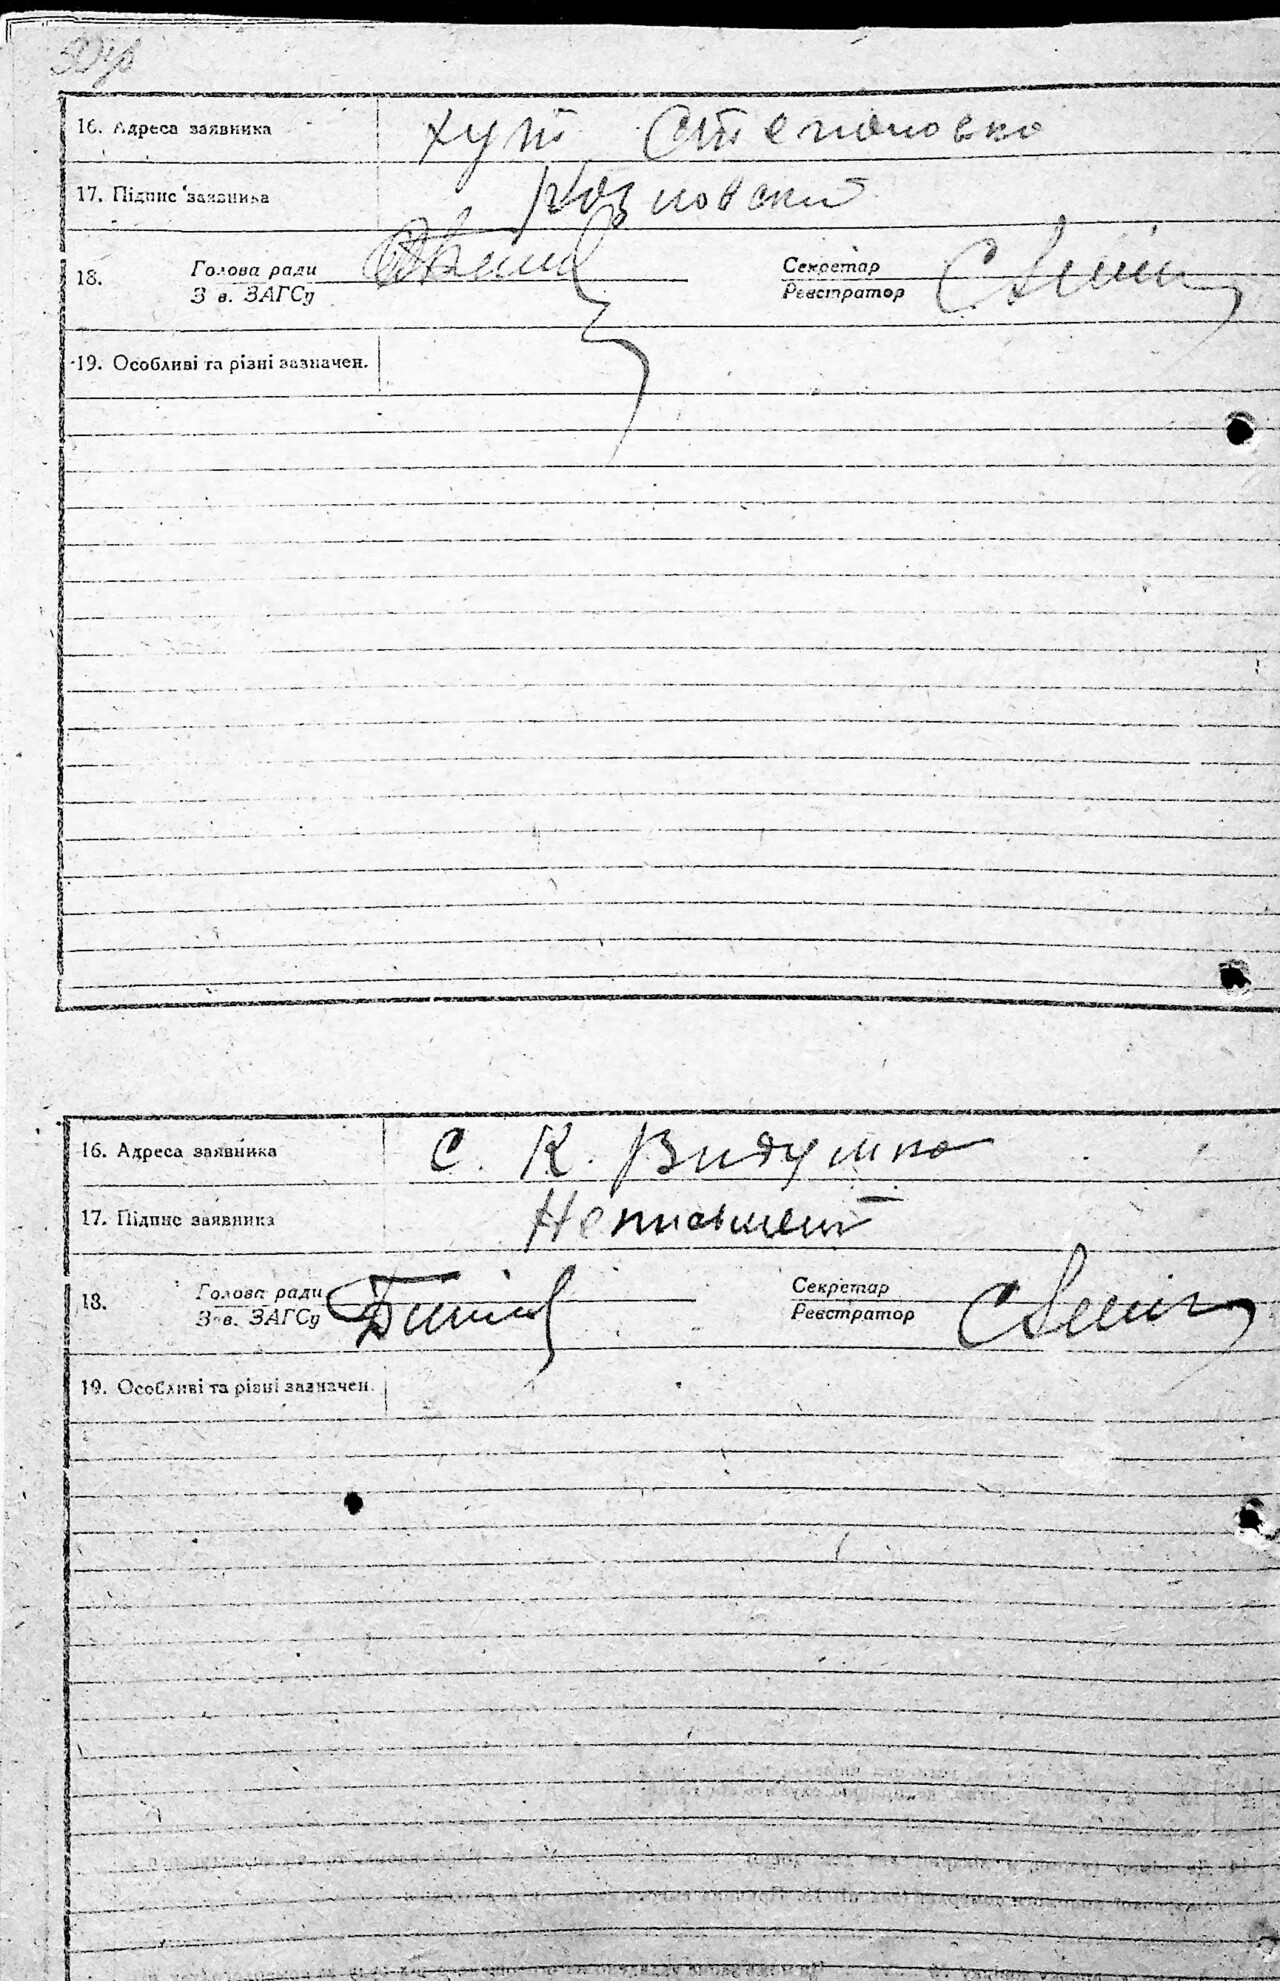 16. Адреса заявника хут Степановка
17. Підпис заявника Козловский
18. Голова ради Секретар
З в. ЗАГСу Реєстратор
19. Особливі та різні зазначен.
16. Адреса заявника с. К. Видумка
17. Підпис заявника Неписьмен
18. Голова ради Секретар
З в. ЗАГСу Реєстратор
19. Особливі та різні зазначен.